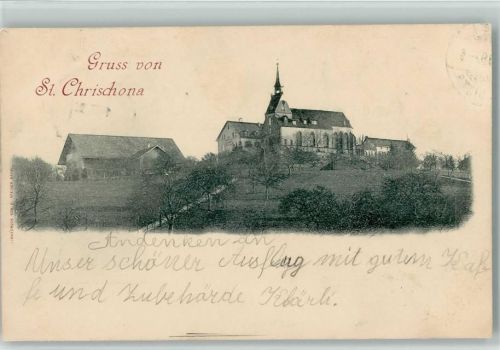 Gruss von
St. Chrischona
Andenken an
Unser schöner Ausflug mit gutem Kaf
fe und Zubehörde Klärli.